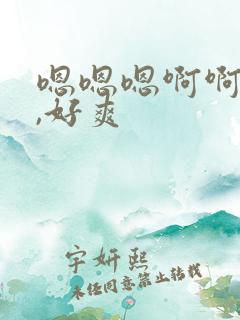 嗯嗯嗯啊啊
,好爽
宇妍熙
未经同意禁止转载